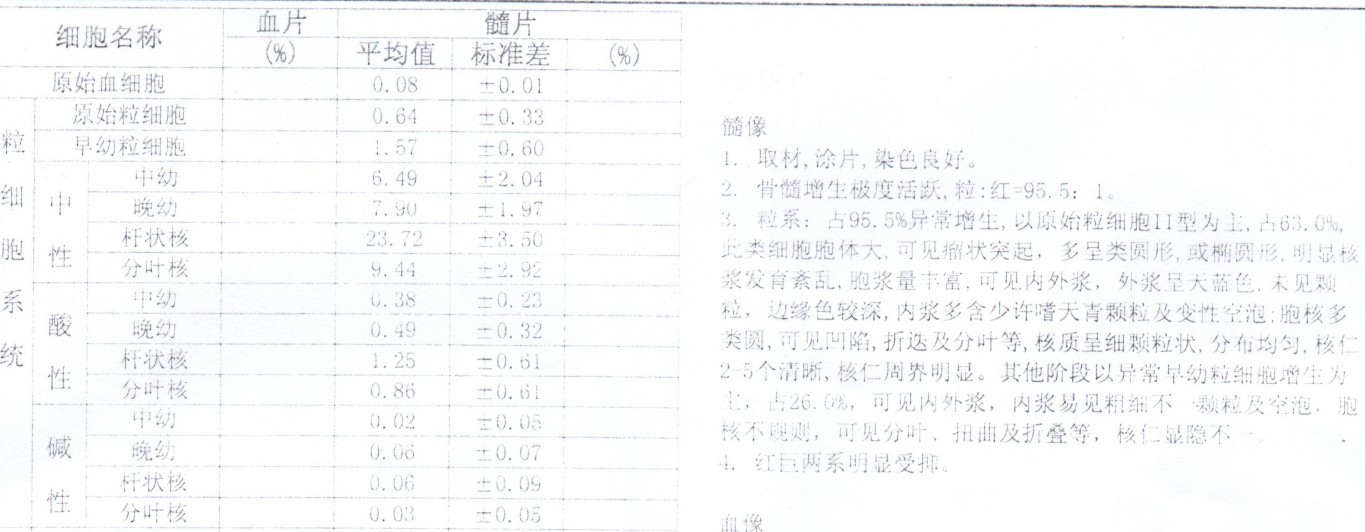 细胞名称 血片 髓片
(%) 平均值 标准差 (%)
原始血细胞 0.08 ±0.01
粒细胞系统
原始粒细胞 0.64 ±0.33
早幼粒细胞 1.57 ±0.60
中性
中幼 6.49 ±2.04
晚幼 7.90 ±1.97
杆状核 23.72 ±3.50
分叶核 9.44 ±2.92
酸性
中幼 0.38 ±0.23
晚幼 0.49 ±0.32
杆状核 1.25 ±0.61
分叶核 0.86 ±0.61
碱性
中幼 0.02 ±0.05
晚幼 0.06 ±0.07
杆状核 0.06 ±0.09
分叶核 0.03 ±0.05
髓像
1. 取材,涂片,染色良好。
2. 骨髓增生极度活跃,粒:红=95.5: 1。
3. 粒系: 占95.5%异常增生,以原始粒细胞II型为主,占63.0%,
此类细胞胞体大,可见瘤状突起, 多呈类圆形,或椭圆形,明显核
浆发育紊乱,胞浆量丰富,可见内外浆, 外浆呈天蓝色,未见颗
粒, 边缘色较深,内浆多含少许嗜天青颗粒及变性空泡;胞核多
类圆,可见凹陷,折迭及分叶等,核质呈细颗粒状,分布均匀,核仁
2-5个清晰,核仁周界明显。其他阶段以异常早幼粒细胞增生为
主, 占26.0%, 可见内外浆, 内浆易见粗细不一颗粒及空泡. 胞
核不规则, 可见分叶、扭曲及折叠等, 核仁显隐不一。
4. 红巨两系明显受抑。
血像